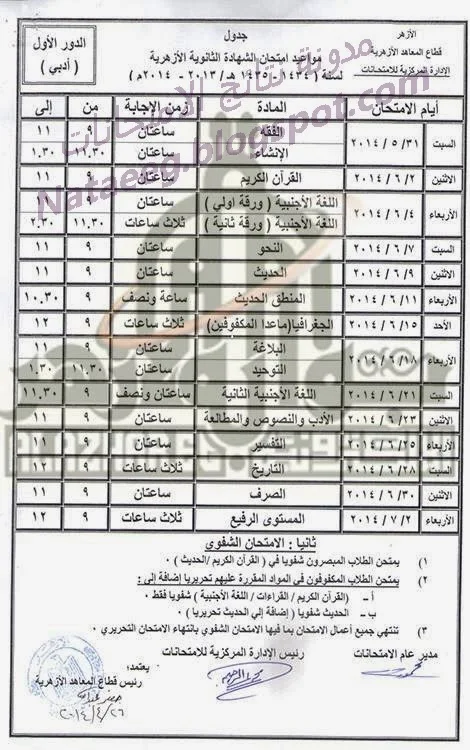 الأزهر
قطاع المعاهد الأزهرية
الإدارة المركزية للامتحانات
جدول
مواعيد امتحان الشهادة الثانوية الأزهرية
لسنة ( ١٤٣٤ - ١٤٣٥ هـ / ٢٠١٣ - ٢٠١٤ م )
الدور الأول
( أدبي )
أيام الامتحان المادة زمن الإجابة من إلى
السبت ٢٠١٤ / ٥ / ٣١ الفقه ساعتان ٩ ١١
الإنشاء ساعتان ١١.٣٠ ١.٣٠
الاثنين ٢٠١٤ / ٦ / ٢ القرآن الكريم ساعتان ٩ ١١
الأربعاء ٢٠١٤ / ٦ / ٤ اللغة الأجنبية ( ورقة اولي ) ساعتان ٩ ١١
اللغة الأجنبية ( ورقة ثانية ) ثلاث ساعات ١١.٣٠ ٢.٣٠
السبت ٢٠١٤ / ٦ / ٧ النحو ساعتان ٩ ١١
الاثنين ٢٠١٤ / ٦ / ٩ الحديث ساعتان ٩ ١١
الأربعاء ٢٠١٤ / ٦ / ١١ المنطق الحديث ساعة ونصف ٩ ١٠.٣٠
الأحد ٢٠١٤ / ٦ / ١٥ الجغرافيا(ماعدا المكفوفين) ثلاث ساعات ٩ ١٢
الأربعاء ٢٠١٤ / ٦ / ١٨ البلاغة ساعتان ٩ ١١
التوحيد ساعتان ١١.٣٠ ١.٣٠
السبت ٢٠١٤ / ٦ / ٢١ اللغة الأجنبية الثانية ساعتان ونصف ٩ ١١.٣٠
الاثنين ٢٠١٤ / ٦ / ٢٣ الأدب والنصوص والمطالعة ساعتان ٩ ١١
الأربعاء ٢٠١٤ / ٦ / ٢٥ التفسير ساعتان ٩ ١١
السبت ٢٠١٤ / ٦ / ٢٨ التاريخ ثلاث ساعات ٩ ١٢
الاثنين ٢٠١٤ / ٦ / ٣٠ الصرف ساعتان ٩ ١١
الأربعاء ٢٠١٤ / ٧ / ٢ المستوى الرفيع ثلاث ساعات ٩ ١٢
ثانيا : الامتحان الشفوي
١) يمتحن الطلاب المبصرون شفويا في ( القرآن الكريم /الحديث ) ٠
٢) يمتحن الطلاب المكفوفون في المواد المقررة عليهم تحريريا إضافة إلى :
أ - (القرآن الكريم / القراءات / اللغة الأجنبية ) شفويا فقط ٠
ب - الحديث شفويا ( إضافة إلي الحديث تحريريا ) ٠
٣) تنتهي جميع أعمال الامتحان بما فيها الامتحان الشفوي بانتهاء الامتحان التحريري ٠
مدير عام الامتحانات
رئيس الإدارة المركزية للامتحانات
يعتمد؛
رئيس قطاع المعاهد الأزهرية
٢٠١٤/٤/٢٦
مدونة نتائج الامتحانات
Nataeeg.blogspot.com